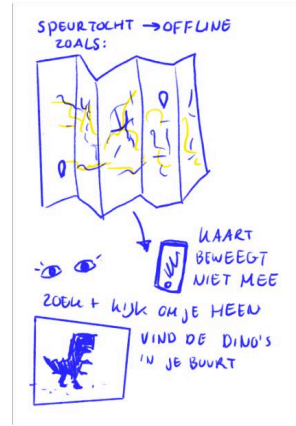 SPEURTOCHT → OFFLINE
ZOALS:
KAART
BEWEEGT
NIET MEE
ZOEK + KIJK OM JE HEEN
VIND DE DINO'S
IN JE BUURT